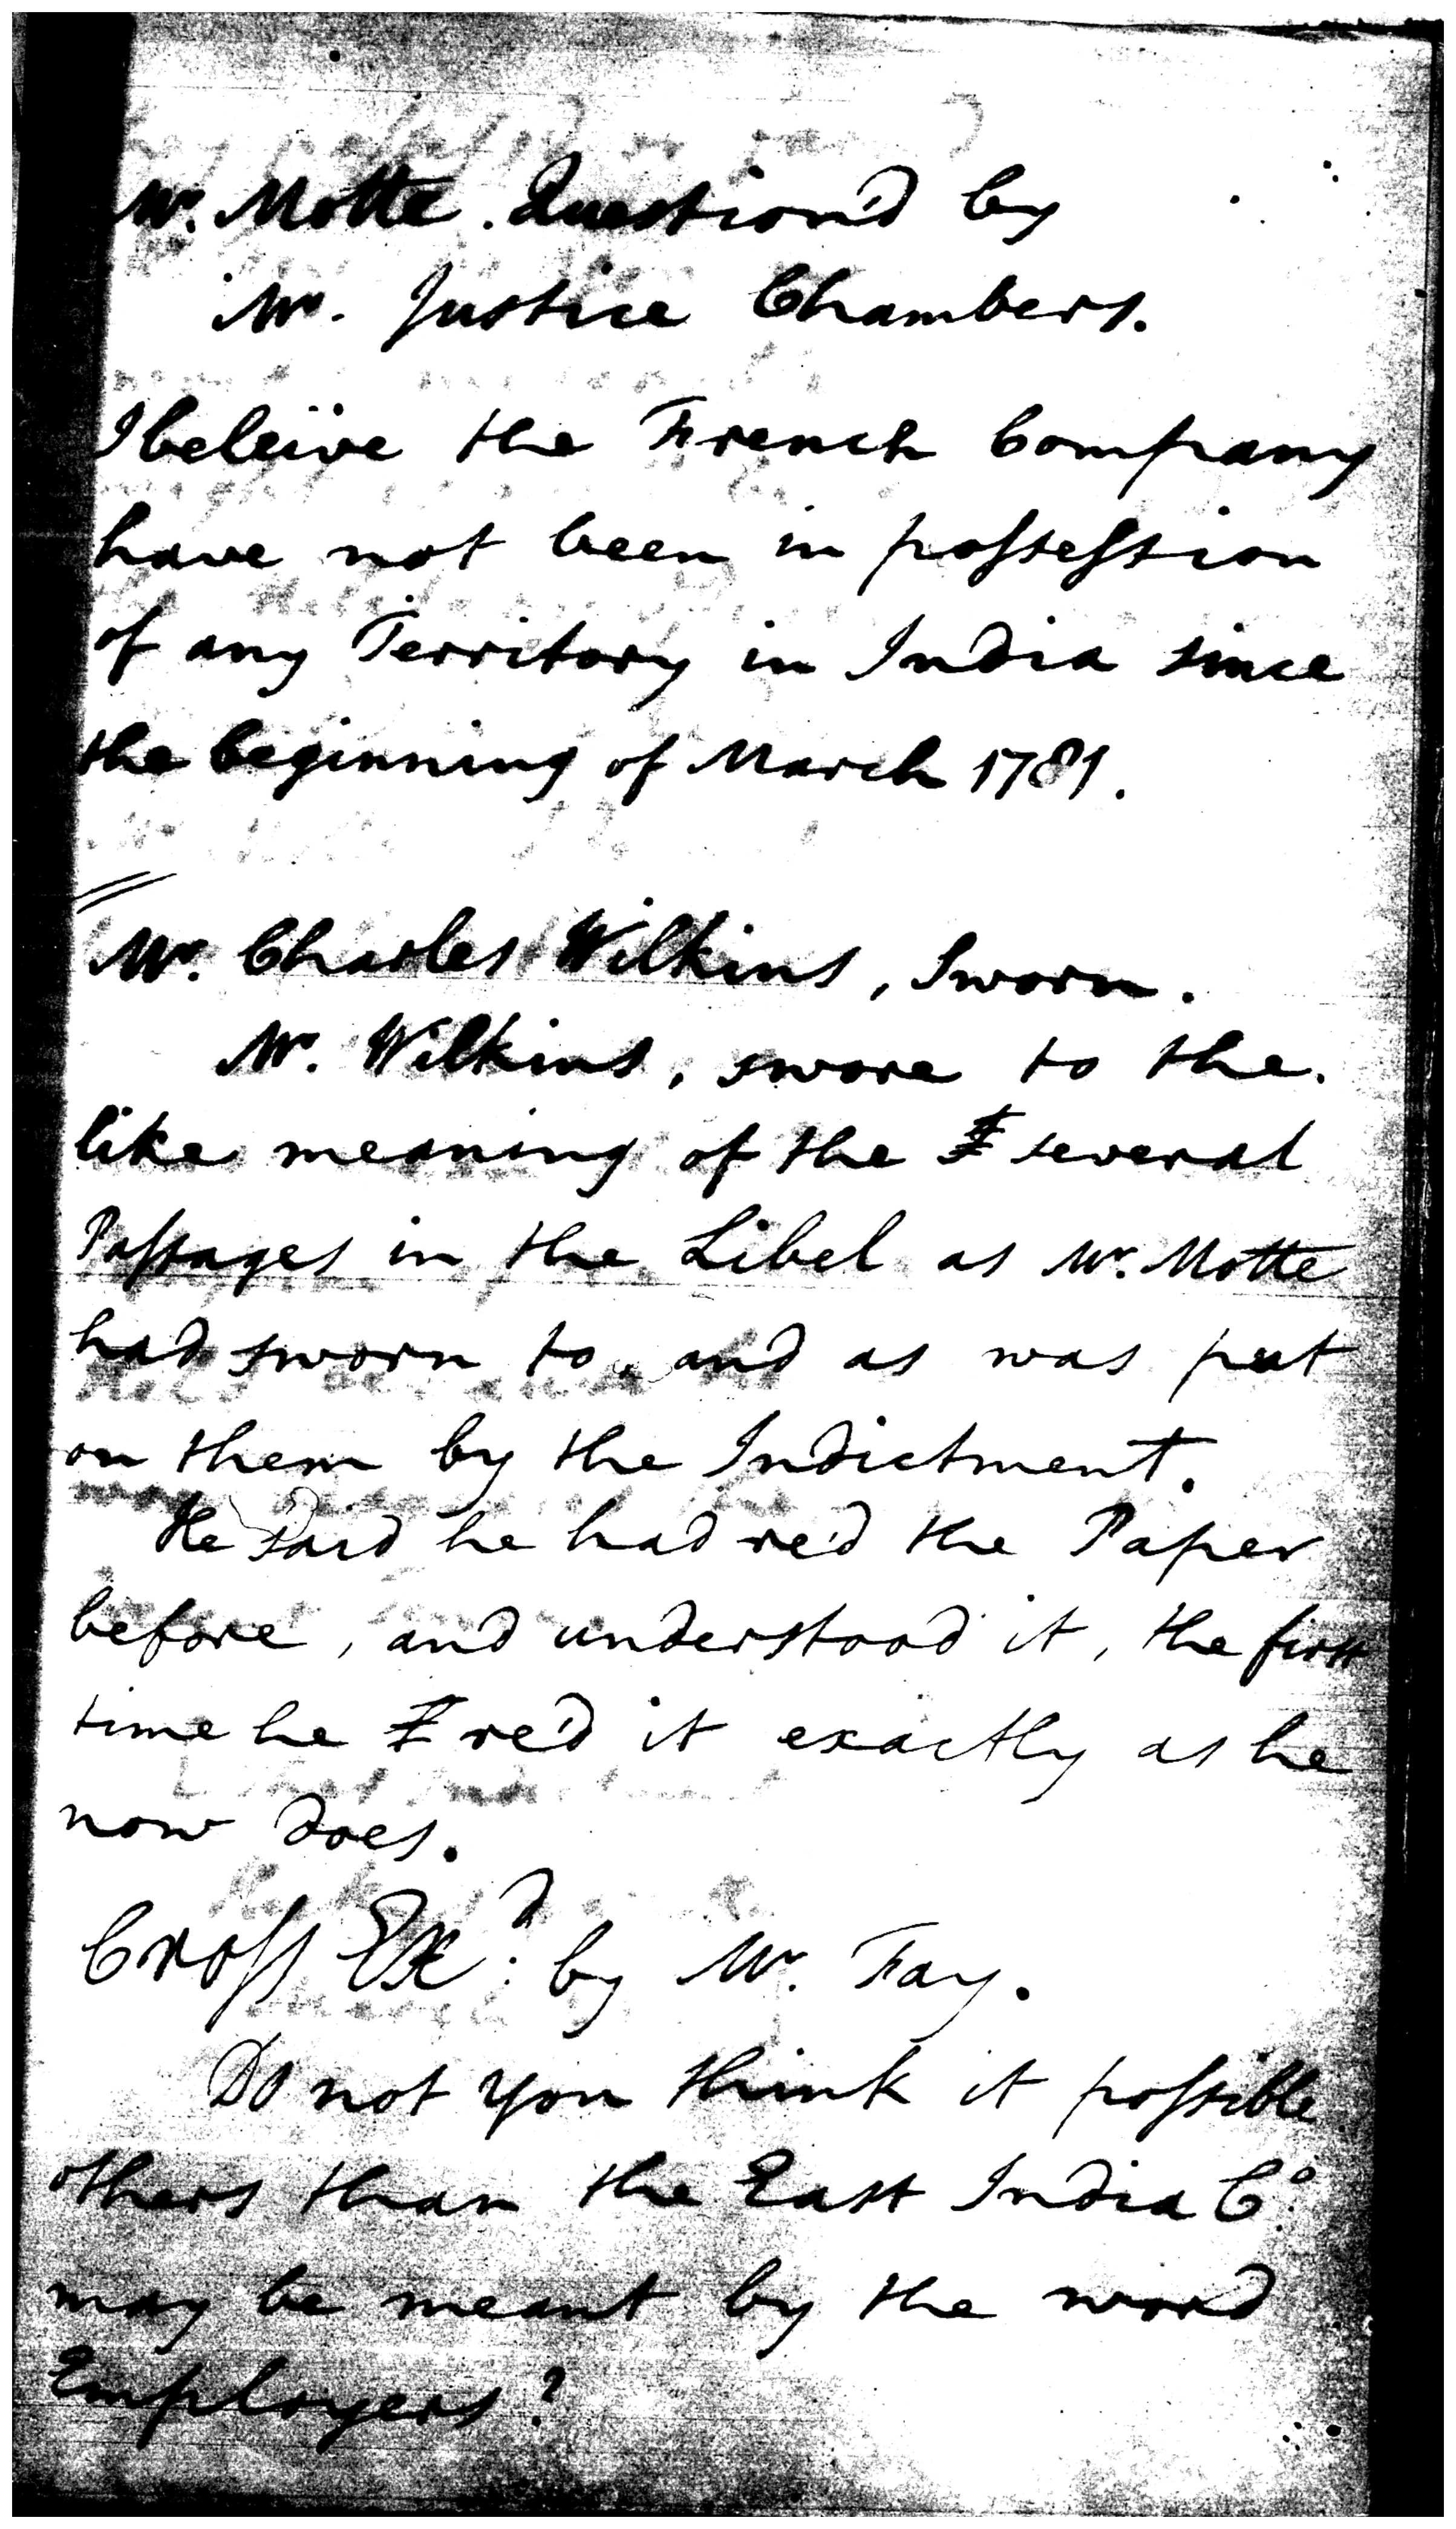 Mr. Motte. Question'd by
Mr. Justice Chambers.
I beleive the French Company
have not been in possession
of any Territory in India since
the beginning of March 1781.
Mr. Charles Wilkins, Sworn.
Mr. Wilkins, swore to the
like meaning of the several
Passages in the Libel as Mr. Motte
had sworn to and as was put
on them by the Indictment.
He said he had re'd the Paper
before, and understood it, the first
time he re'd it exactly as he
now does.
Cross Exd: by Mr. Fay.
Do not you think it possible
others than the East India Co.
may be meant by the word
Employers?